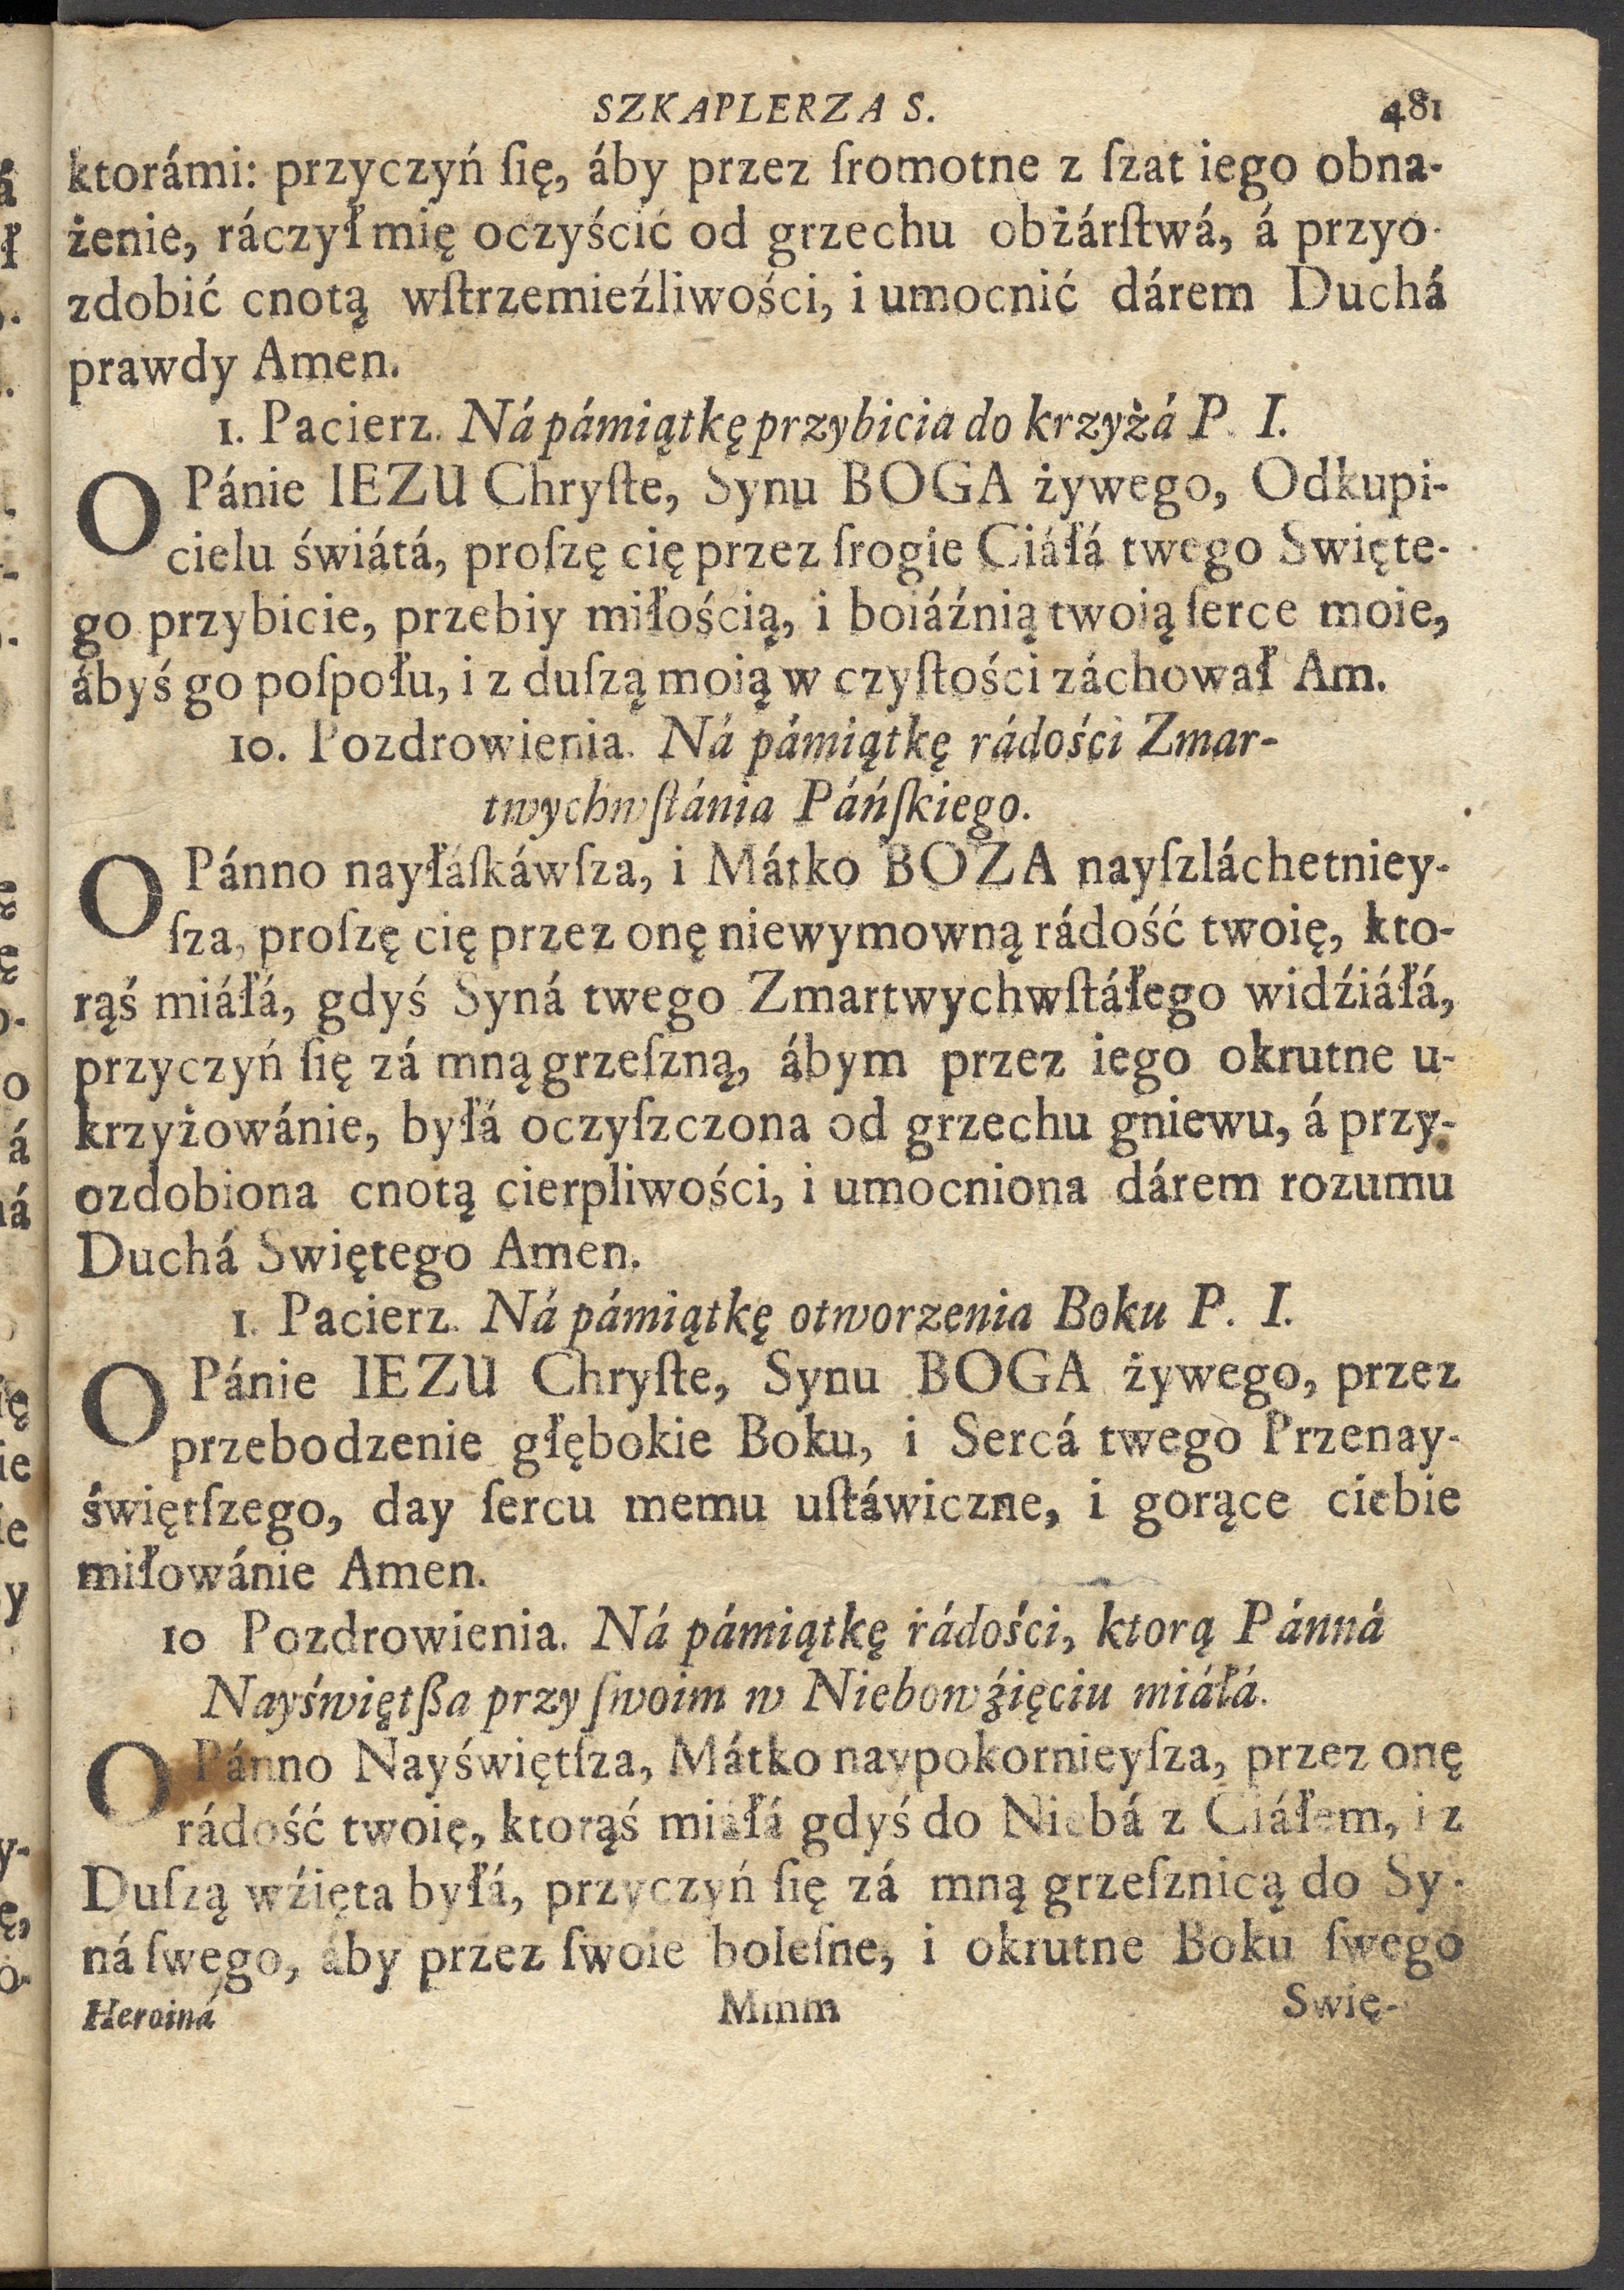 SZKAPLERZA S. 481
ktorámi: przyczyń ſię, áby przez ſromotne z ſzat iego obna-
żenie, ráczył mię oczyścić od grzechu obżárſtwá, á przyo-
zdobić cnotą wſtrzemieźliwości, i umocnić dárem Duchá
prawdy Amen.
1. Pacierz. Ná pámiątkę przybicia do krzyżá P. I.
O Pánie IEZU Chryſte, Synu BOGA żywego, Odkupi-
cielu świátá, proſzę cię przez ſrogie Ciáłá twego Swięte-
go przybicie, przebiy miłością, i boiáźnią twoią ſerce moie,
ábyś go poſpołu, i z duſzą moią w czyſtości záchował Am.
10. Pozdrowienia. Ná pámiątkę rádości Zmar-
twychwſtánia Páńſkiego.
O Pánno nayłáſkáwſza, i Mátko BOZA nayſzláchetniey-
ſza, proſzę cię przez onę niewymowną rádość twoię, kto-
rąś miáłá, gdyś Syná twego Zmartwychwſtáłego widźiáłá,
przyczyń ſię zá mną grzeſzną, ábym przez iego okrutne u-
krzyżowánie, byłá oczyſzczona od grzechu gniewu, á przy-
ozdobiona cnotą cierpliwości, i umocniona dárem rozumu
Duchá Swiętego Amen.
1. Pacierz. Ná pámiątkę otworzenia Boku P. I.
O Pánie IEZU Chryſte, Synu BOGA żywego, przez
przebodzenie głębokie Boku, i Sercá twego Przenay-
świętſzego, day ſercu memu uſtáwiczne, i gorące ciebie
miłowánie Amen.
10 Pozdrowienia. Ná pámiątkę rádości, ktorą Pánná
Nayświętßa przy ſwoim w Niebowźięciu miáłá.
O Pánno Nayświętſza, Mátko naypokornieyſza, przez onę
rádość twoię, ktorąś miáłá gdyś do Niebá z Ciáłem, i z
Duſzą wźięta byłá, przyczyń ſię zá mną grzeſznicą do Sy-
ná ſwego, áby przez ſwoie boleſne, i okrutne Boku ſwego
Heroiná Mmm Swię-